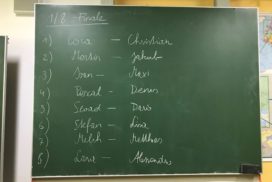 1/8 - Finale
1) Luca — Christian
2) Martin — Jakub
3) Ivan — Maxi
4) Pascal — Denis
5) Senad — Dario
6) Stefan — Lina
7) — Matthias
8) — Alexandra